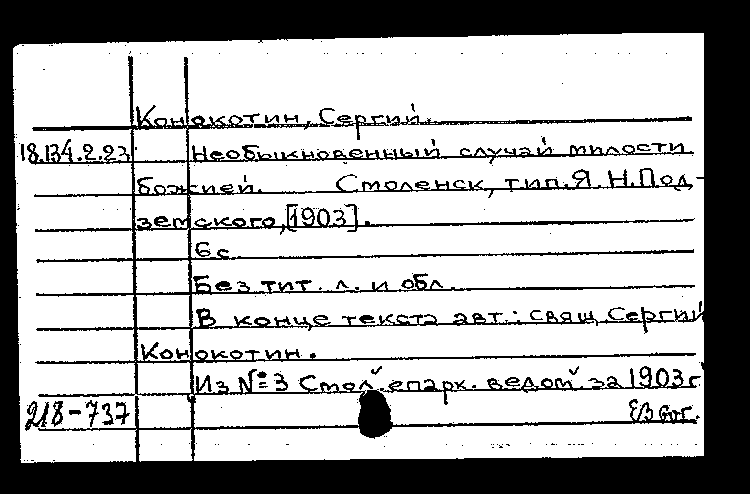 Конокотин, Сергий.
18.134.2.23 Необыкновенный случай милости
божией. Смоленск, тип. Я. Н. Под-
земского, [1903].
6 с.
Без тит. л. и обл.
В конце текста авт.: свящ. Сергий
Конокотин.
Из №3 Смол. епарх. ведом. за 1903 г.
218-737